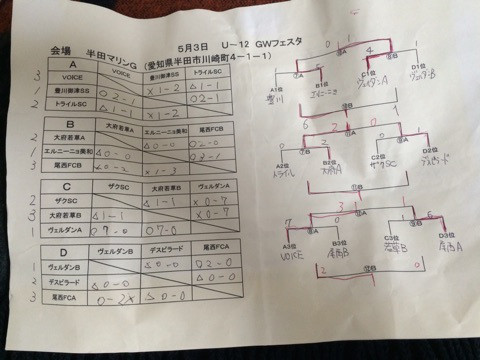 5月3日 U-12 GWフェスタ
会場 半田マリンG (愛知県半田市川崎町4-1-1)
A VOICE 豊川御津SS トライルSC
3 VOICE ×1-2 △1-1
1 豊川御津SS ○2-1 ○2-1
2 トライルSC △1-1 ×1-2
B 大府若草A エルニーニョ美和 尾西FCB
2 大府若草A △0-0
1 エルニーニョ美和 △0-0
3 尾西FCB ×0-2 ×1-3
C ザクSC 大府若草B ヴェルダンA
2 ザクSC △1-1 ×0-7
3 大府若草B △1-1 ×0-7
1 ヴェルダンA ○7-0 ○7-0
D ヴェルダンB デスピラード 尾西FCA
1 ヴェルダンB △0-0 ○2-0
2 デスピラード △0-0 △0-0
3 尾西FCA 0-2× △0-0
0 1 4
A1位 B1位 C1位 D1位
豊川 エルニーニョ ヴェルダンA ヴェルダンB
6 1
2 0
A2位 B2位 C2位 D2位
トライル 大府A ザクSC デスピラード
3 1
7 0 1 6
A3位 B3位 C3位 D3位
VOICE 尾西B 若草B 尾西A
2 0